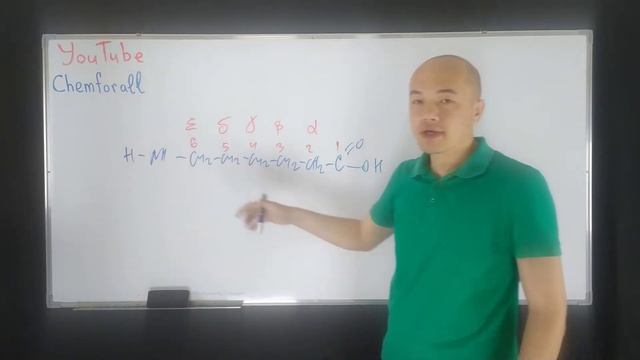 YouTube
Chemforall
ε δ γ β α
6 5 4 3 2 1 O
H - NH - CH2 - CH2 - CH2 - CH2 - CH2 - C - OH